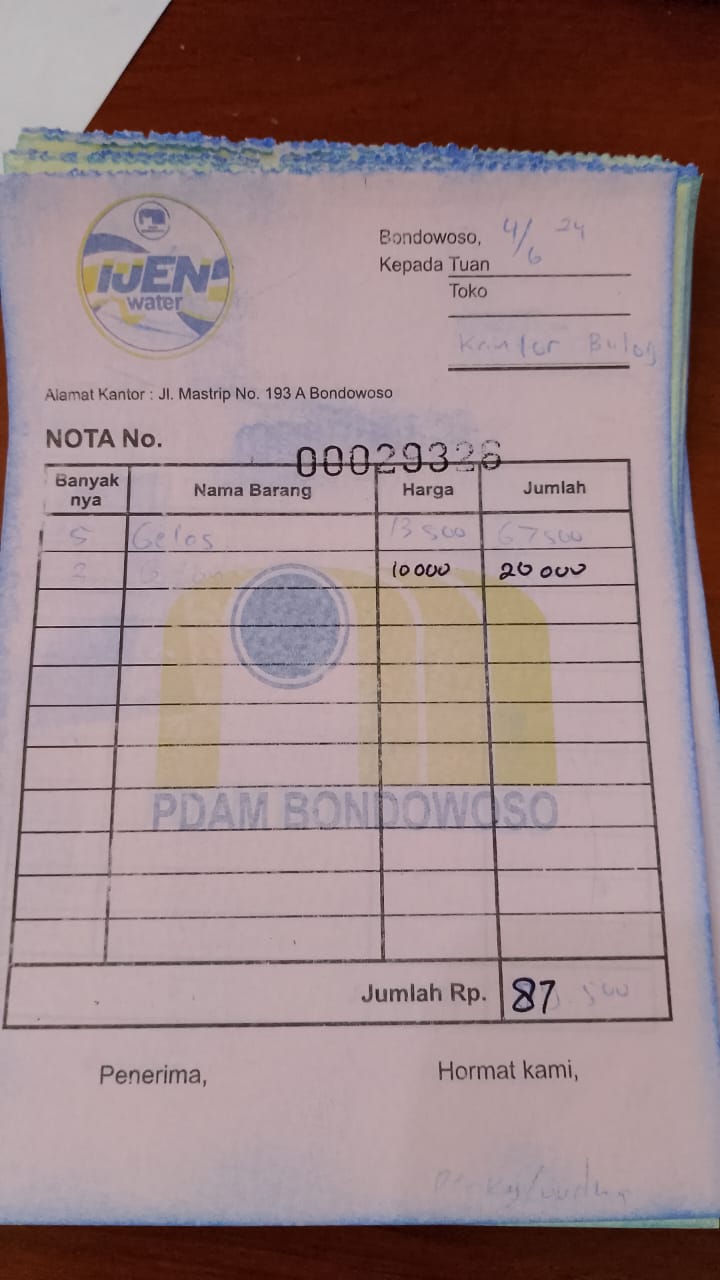 IJEN
water
Bondowoso, 4/6 24
Kepada Tuan
Toko
Kantor Bulog
Alamat Kantor : Jl. Mastrip No. 193 A Bondowoso
NOTA No. 00029326
Banyak nya Nama Barang Harga Jumlah
5 Gelas 13 500 67 500
2 10 000 20 000
PDAM BONDOWOSO
Jumlah Rp. 87 500
Penerima, Hormat kami,